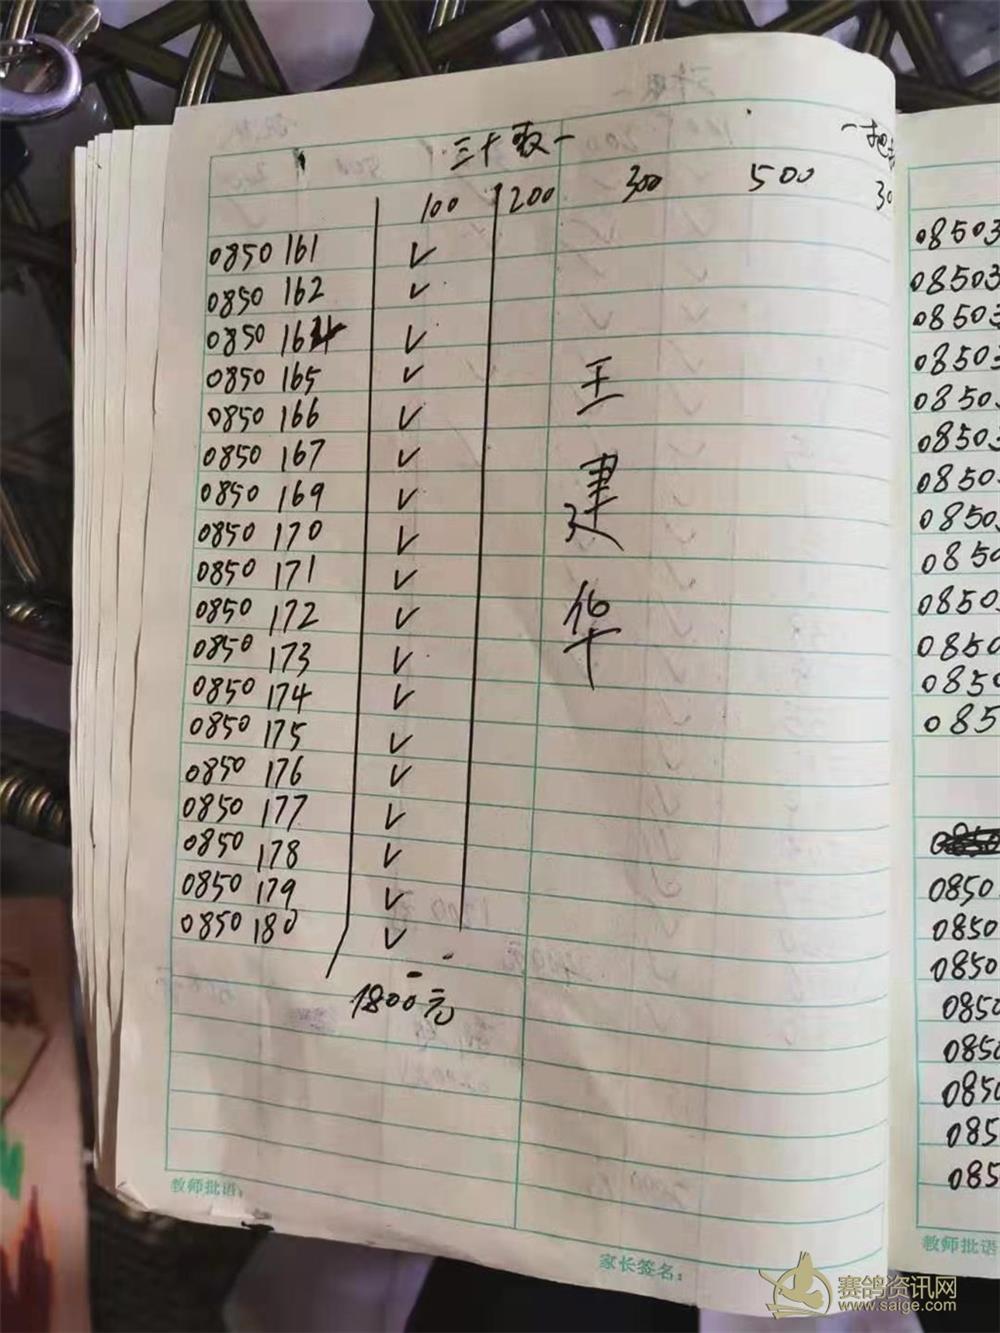 三十取一
一把抓
100 200 300 500 30
0850 161 ✓
0850 162 ✓
0850 164 ✓
0850 165 ✓
0850 166 ✓
0850 167 ✓
0850 169 ✓
0850 170 ✓
0850 171 ✓
0850 172 ✓
0850 173 ✓
0850 174 ✓
0850 175 ✓
0850 176 ✓
0850 177 ✓
0850 178 ✓
0850 179 ✓
0850 180 ✓
1800元
王建华
教师批语:
家长签名:
08503
08503
08503
08503
0850
08503
0850
08503
0850
0850
0850
0850
085
0850
0850
0850
0850
0850
0850
085
085
教师批语
赛鸽资讯网
www.saige.com